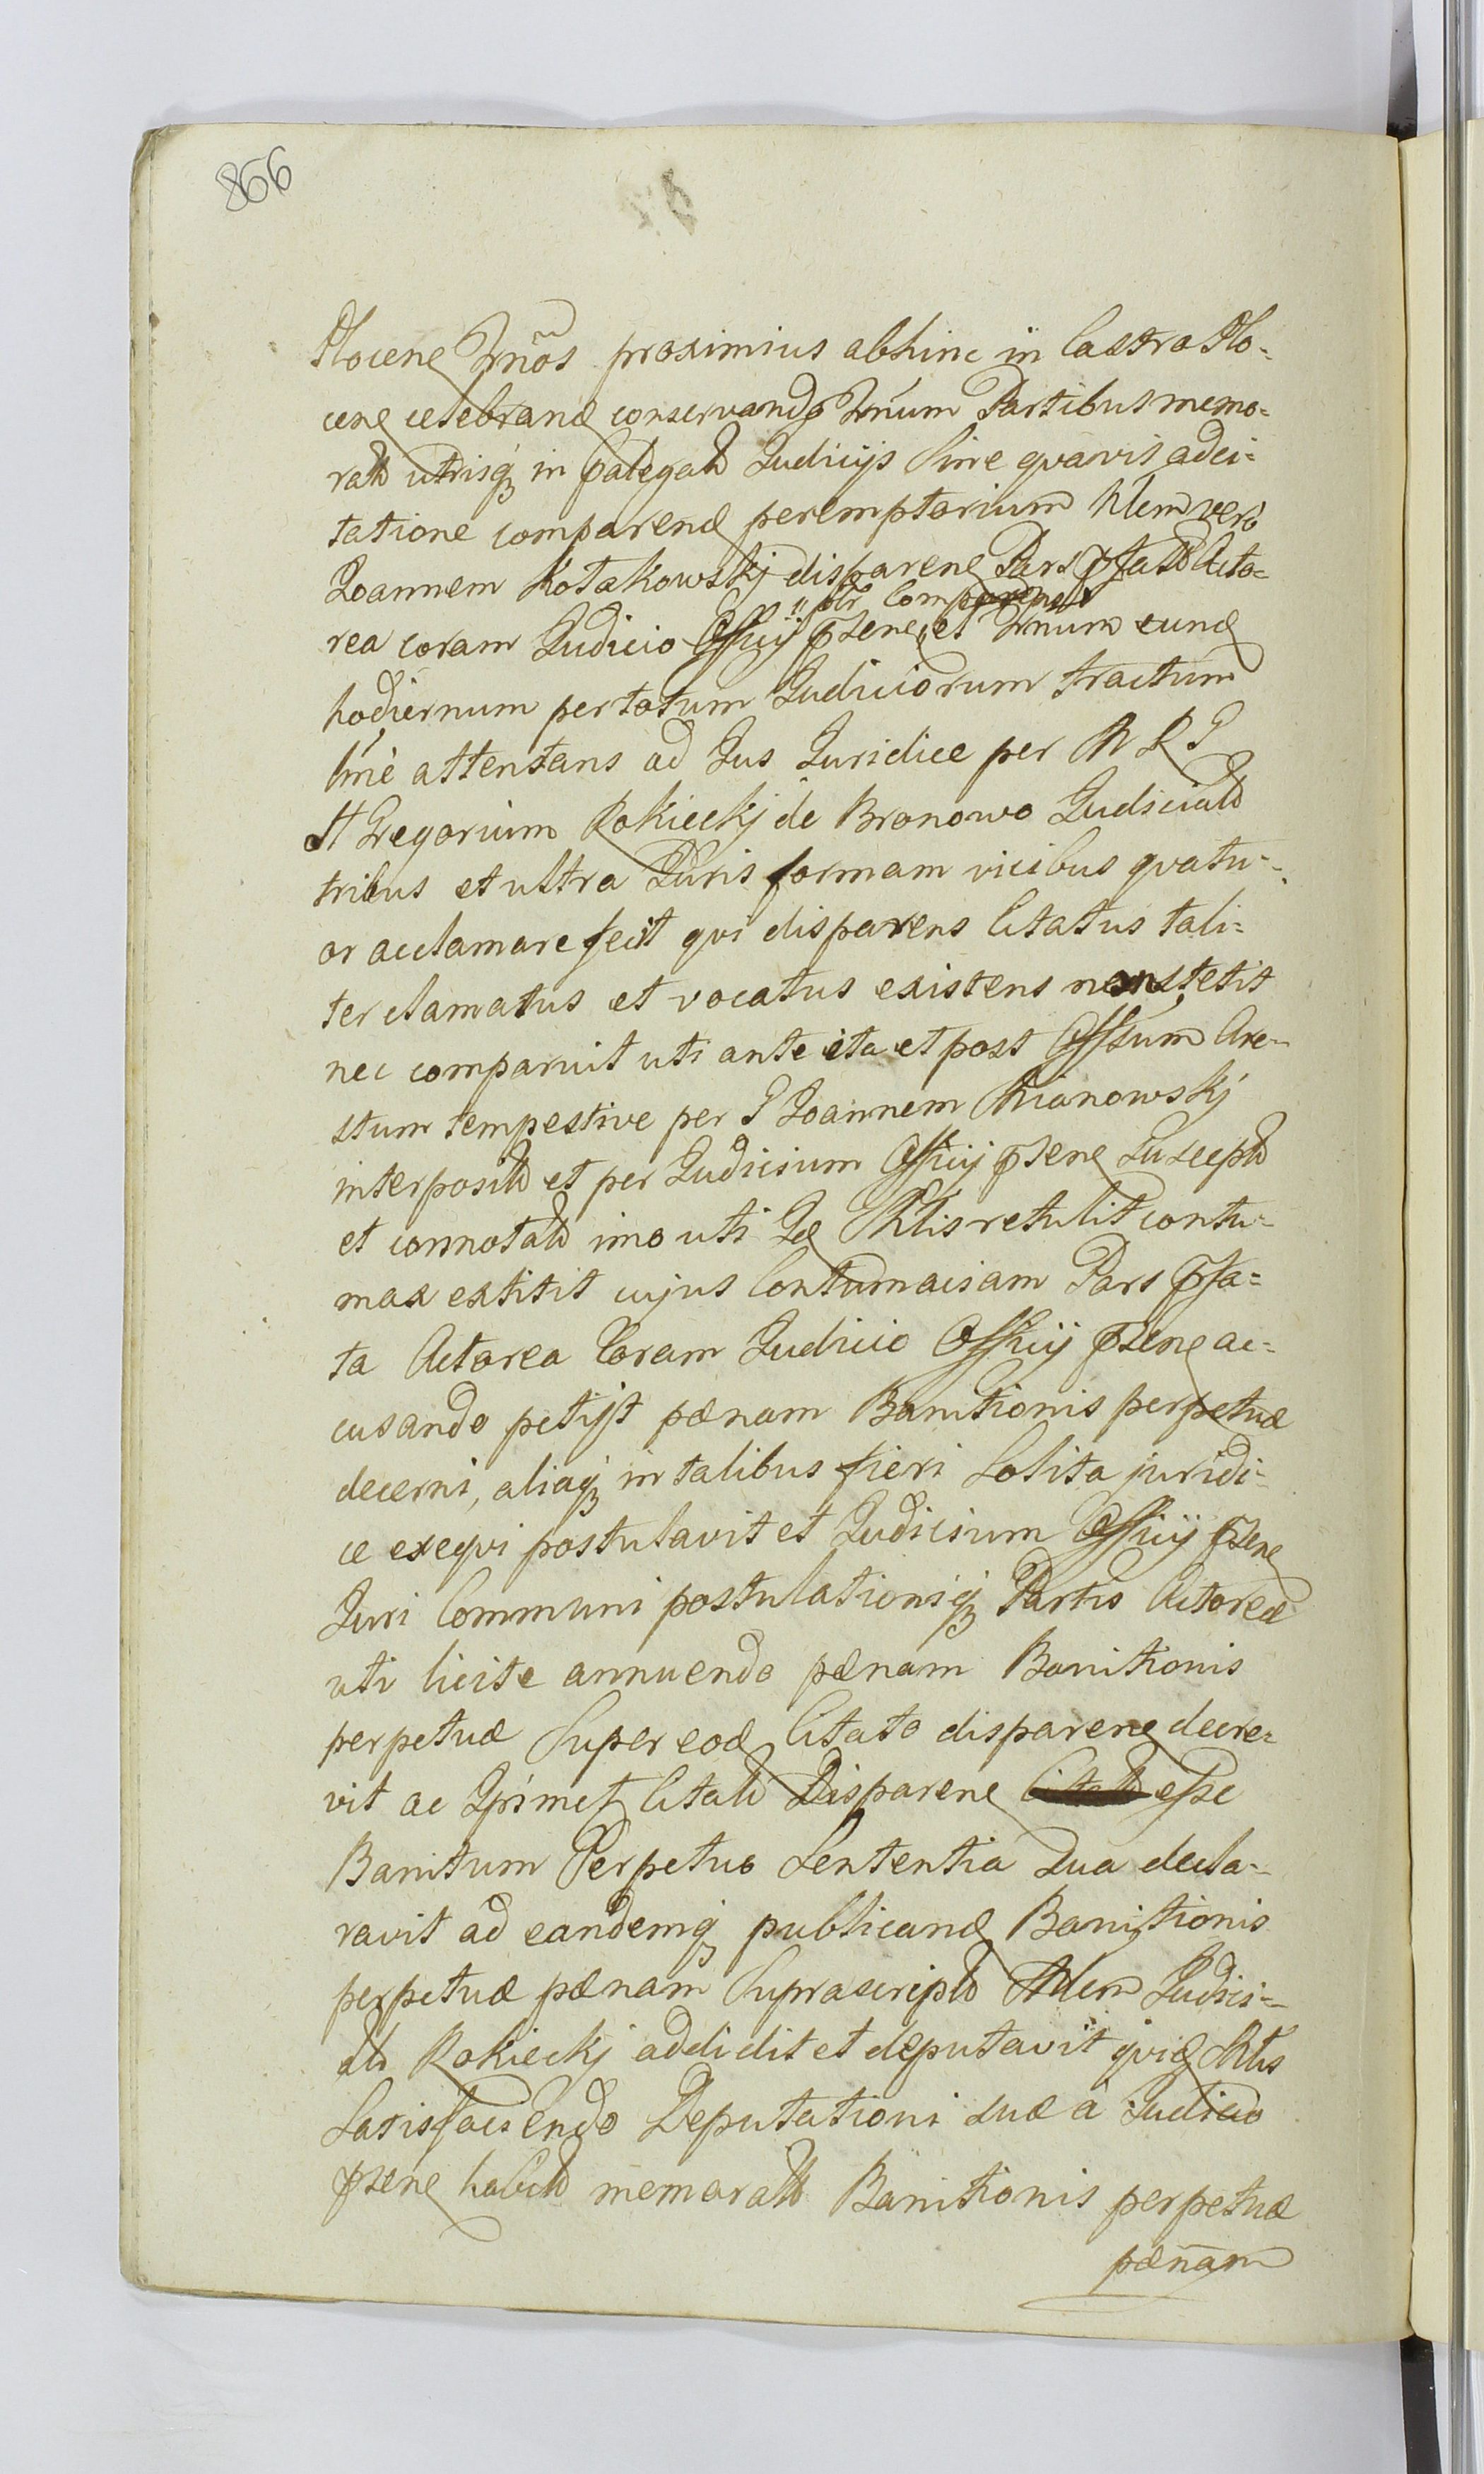 866
Plocen Trños proximius abhinc in Castro Plo=
cen celebrand conservando Trñum Partibus memo=
ratis utrisq in Judicijs Sine qvavis adci=
tatione comparend peremptorium Nlem vero
Joannem Kołakowskj disparen Pars pfata Acto=
rea coram Judicio Officij psen, et Trnum eund
" ptr Comparens
hodiernum per totum Judiciorum tractum
lmè attentans ad Jus Juridice per M R J
H Gregorium Rokieckj de Bronowo Judicialẽ
tribus et ultra Juris formam vicibus qvatu=
or acclamare fecit qvi disparens Citatus tali=
ter clamatus et vocatus existens non stetit
nec comparuit uti ante ita et post Offsum Are=
stum tempestive per J Joannem Chianowskj
interposit et per Judicium Officij psen Suscept
et connotat imo uti Id Mtlis retulit contu=
max extitit cujus Contumaciam Pars pfa=
ta Actorea Coram Judicio Officij psen ac=
cusando petijt pœnam Banitionis perpetuæ
decerni, aliaq in talibus fieri Solita juridi=
ce exeqvi postulavit et Judicium Officij psen
Juri Communi postulationiq Partis Actoreæ
uti licite annuendo pœnam Banitionis
perpetuæ Super eod Citato disparen decre=
vit ac Ipsimet Citat Disparen esse
Banitum Perpetuo Sententia Sua decla=
ravit ad eandemq publicand Banitionis
perpetuæ pœnam Suprascript Mlem Judici=
alẽ Rokieckj addidit et deputavit qvid Mtlis
Satisfaciendo Deputationi suæ à Judicio
psen habit memorat Banitionis perpetuæ
pœnam